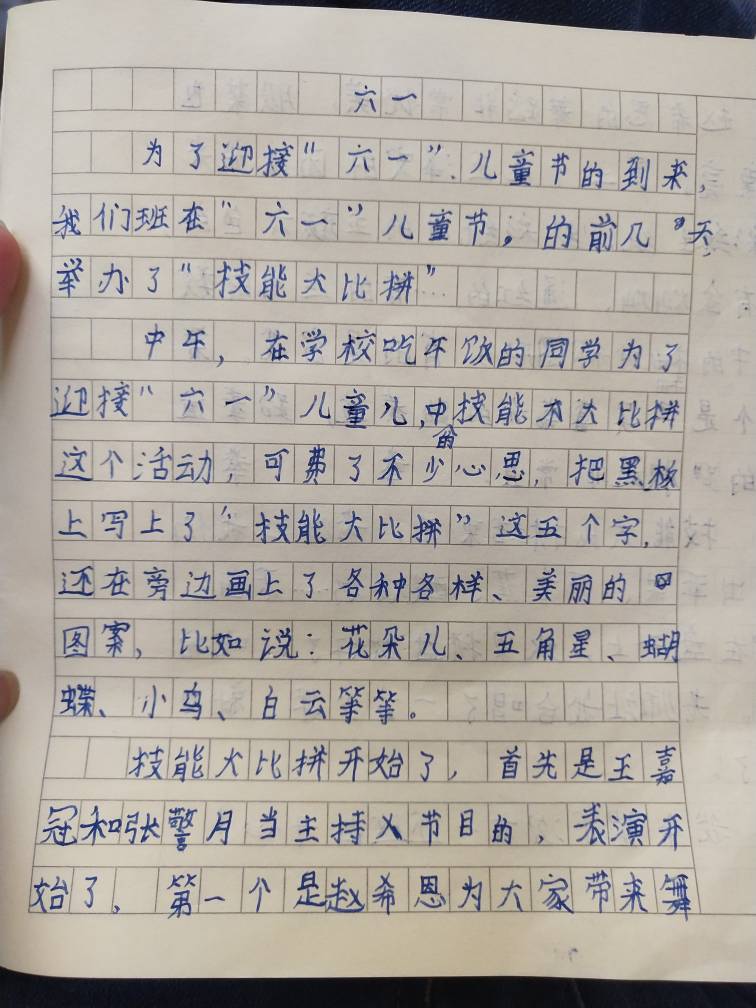 六一
为了迎接“六一”.儿童节的到来,
我们班在“六一”儿童节。的前几天,
举办了“技能大比拼”
中午,在学校吃午饭的同学为了
迎接“六一”儿童儿,中技能木大比拼
这个活动,可费了不少的心思,把黑板
上写上了“技能大比拼”这五个字,
还在旁边画上了各种各样、美丽的
图案,比如说:花朵儿、五角星、蝴
蝶、小鸟、白云等等。
技能大比拼开始了,首先是王嘉
冠和张警月当主持人节目的,表演开
始了,第一个是赵希恩为大家带来舞